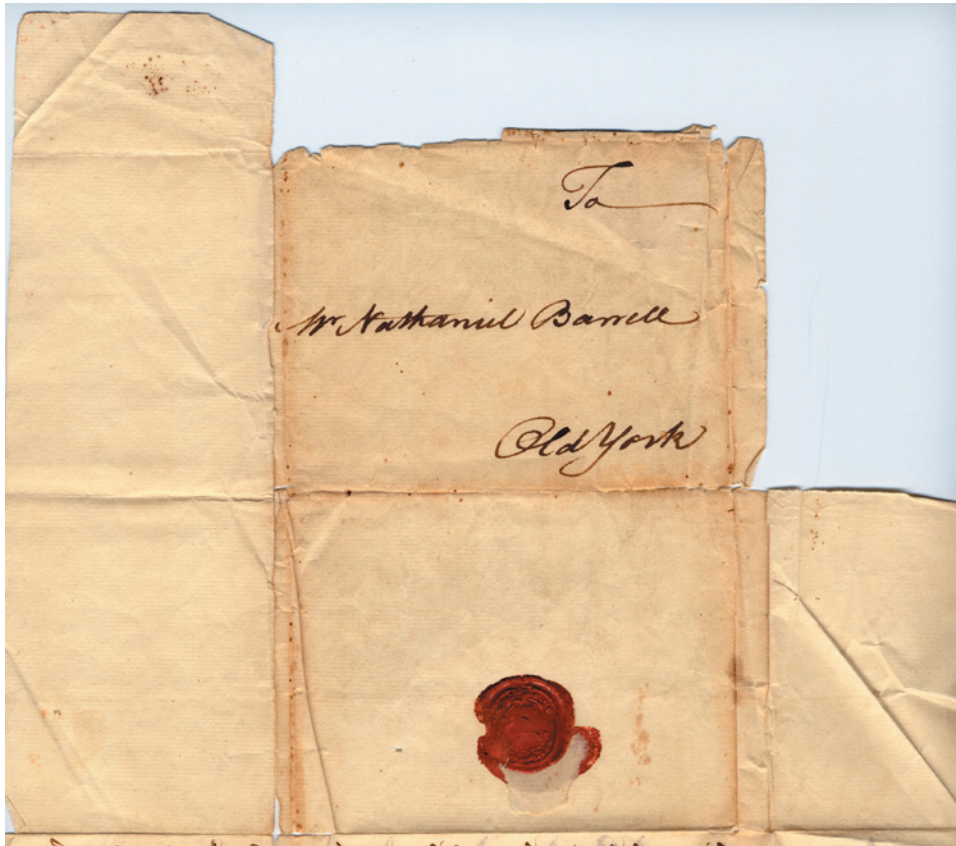 To
Mr Nathaniel Barrell
Old York